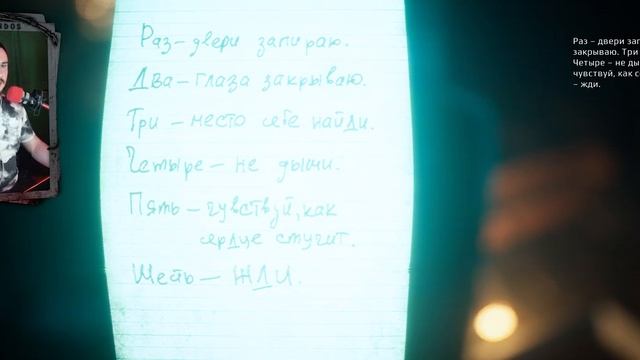 Раз – двери запираю.
Два – глаза закрываю.
Три – место себе найди.
Четыре – не дыши.
Пять – чувствуй, как
сердце стучит.
Шесть – ЖДИ.
Раз – двери зап
закрываю. Три
Четыре – не ды
чувствуй, как с
– жди.